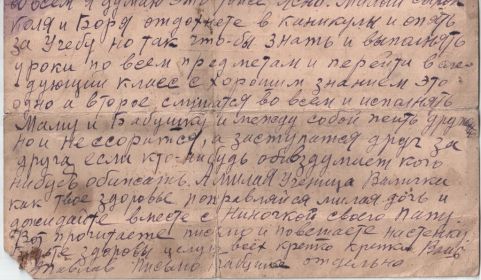 во всем я думаю это тоже ясно. Милый сынок
Коля и Боря отдохнете в каникулы и опять
за Учебу но так что-бы знать и выполнять
уроки по всем предметам и перейти в сле
дующий класс с хорошим знанием это
одно а второе, слушатся во всем и исполнять
Маму и Бабушку и между собой жить друж
ной Не ссорится, а заступатся друг за
друга, если кто-нибудь обвздумает кого
нибудь обижать. А милая Ученица Валички
как твое здоровье поправляйся милая дочь и
дожидайте вместе с Ниночкой своего Папу.
Вот прочитаете письмо и повешаете на стенку
здоровы целую всех крепко крепко Ваш
Павлав Письмо отдельно